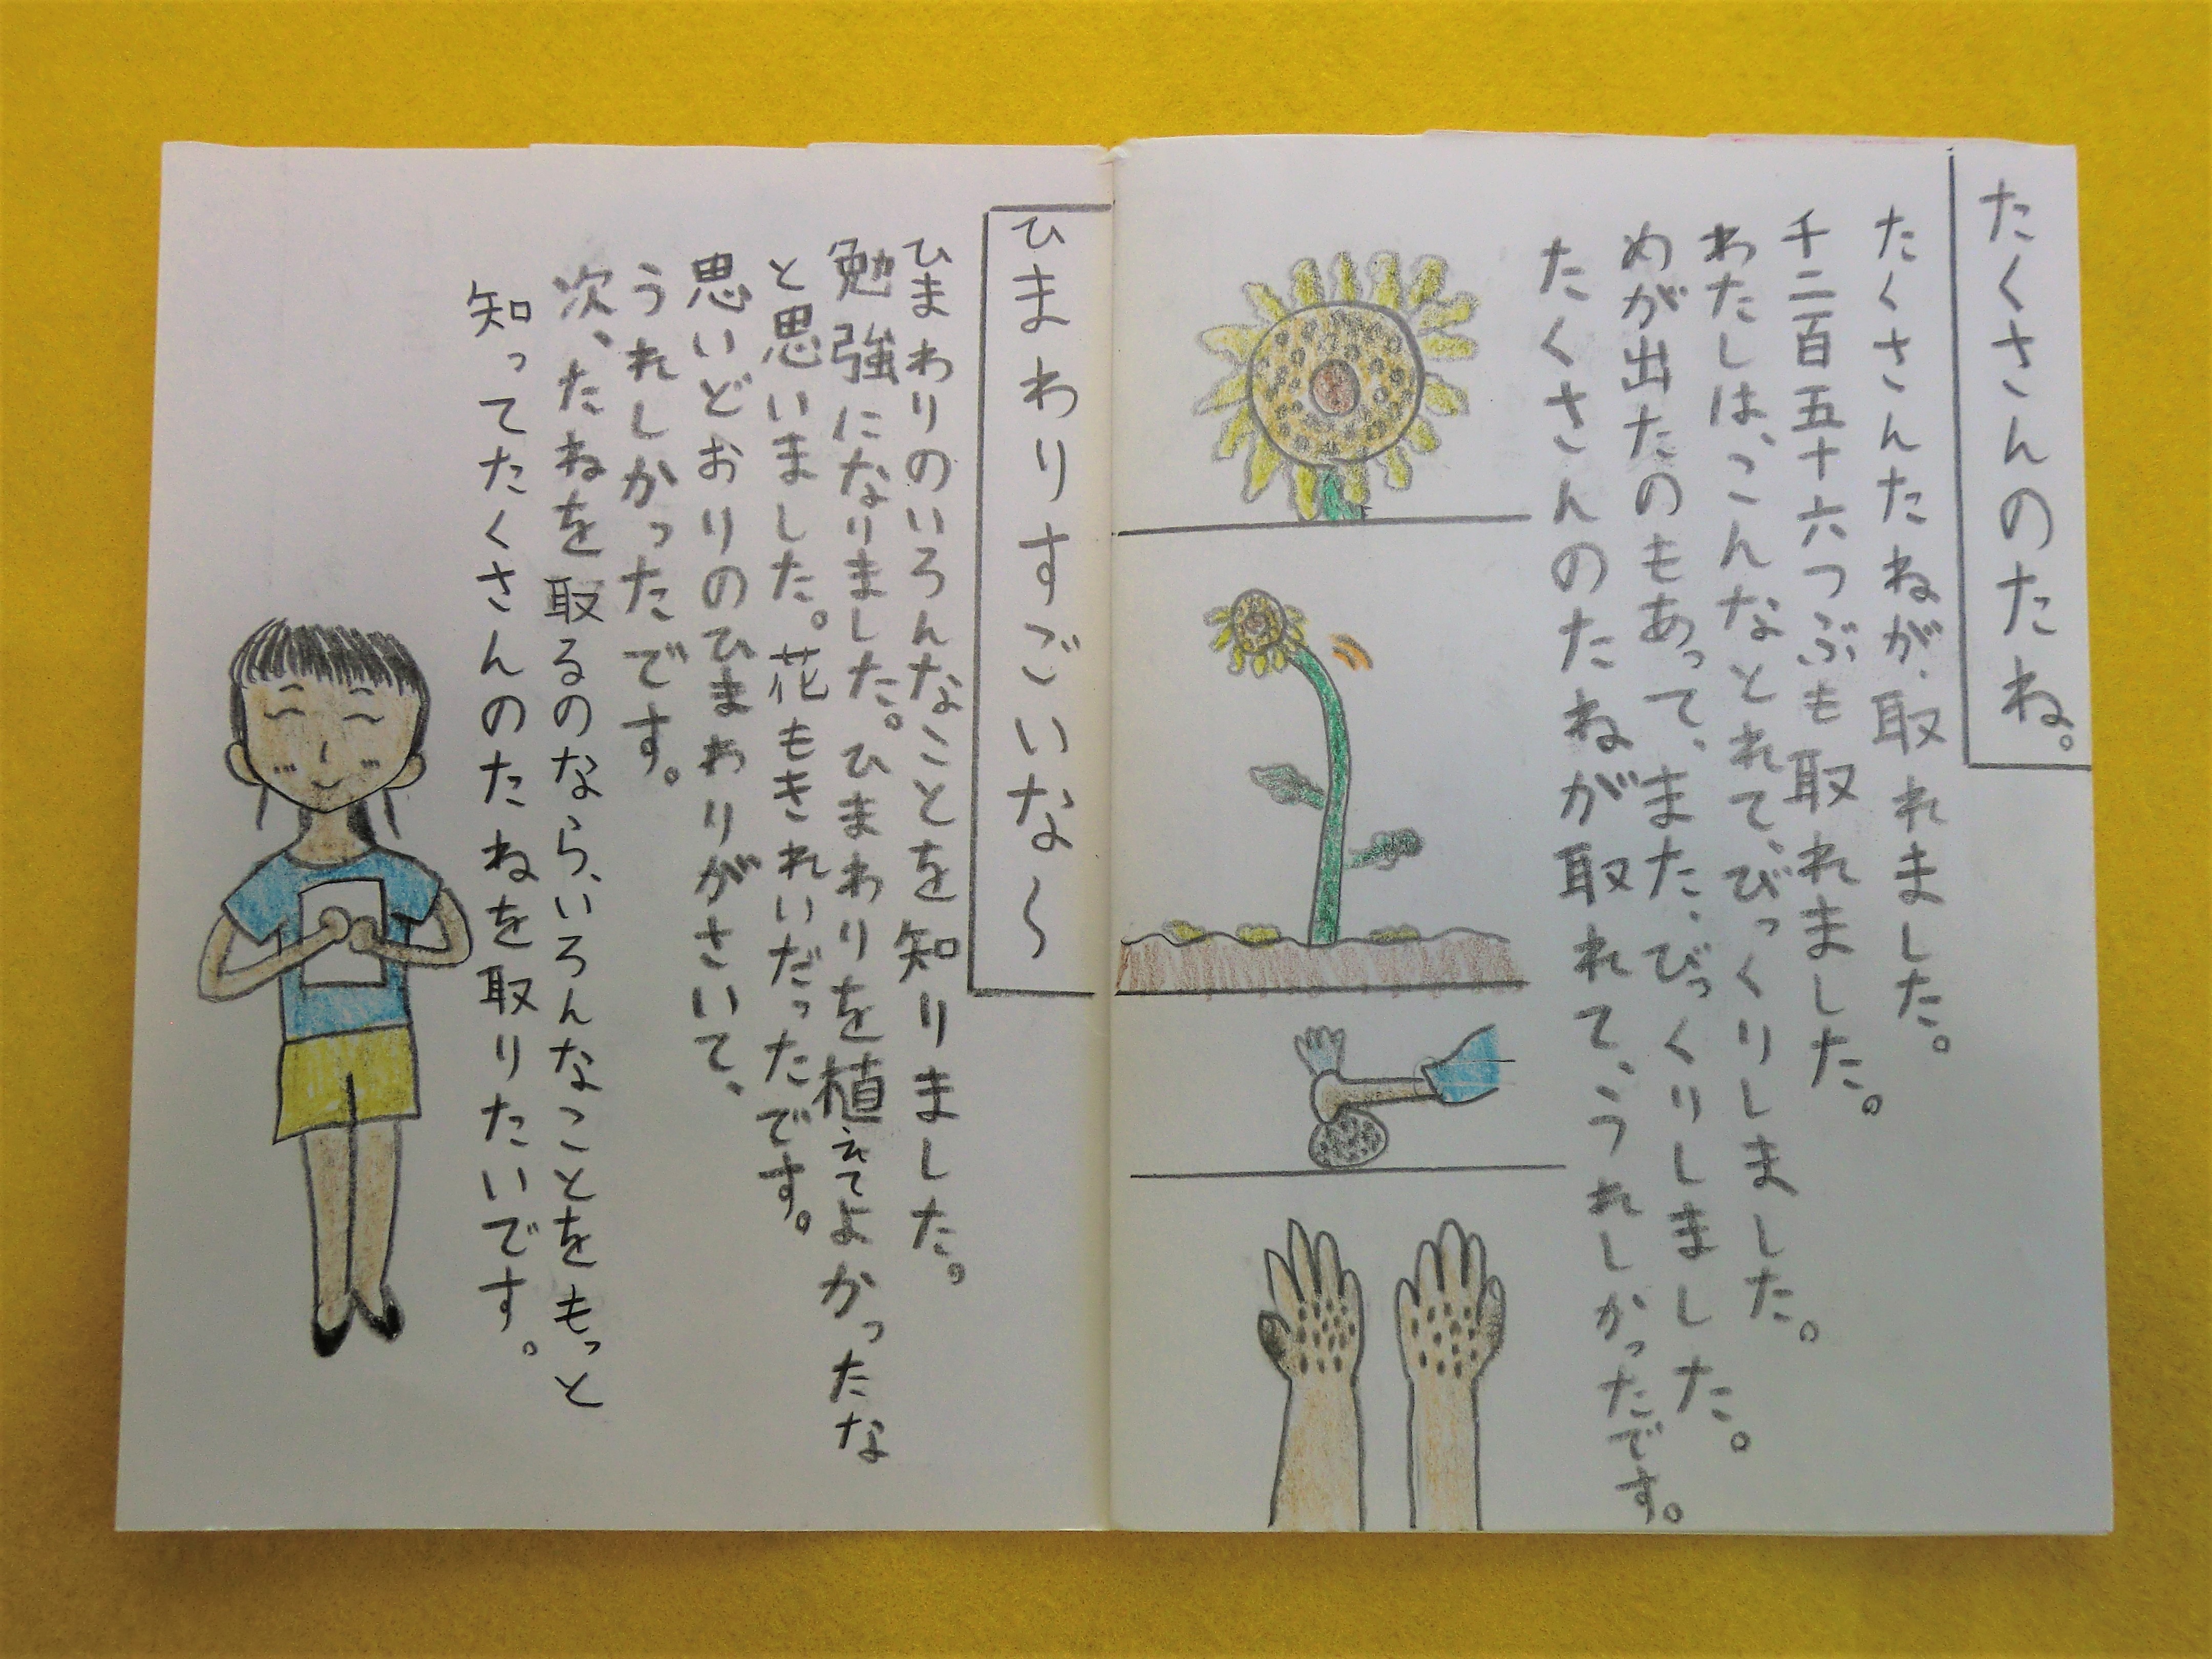 たくさんのたね。
たくさんたねが、取れました。
千二百五十六つぶも取れました。
わたしは、こんなとれて、びっくりしました。
めが出たのもあって、また、びっくりしました。
たくさんのたねが取れて、うれしかったです。
ひまわりすごいな〜
ひまわりのいろんなことを知りました。
勉強になりました。ひまわりを植えてよかったな
と思いました。花もきれいだったです。
思いどおりのひまわりがさいて、
うれしかったです。
次、たねを取るのなら、いろんなことをもっと
知ってたくさんのたねを取りたいです。